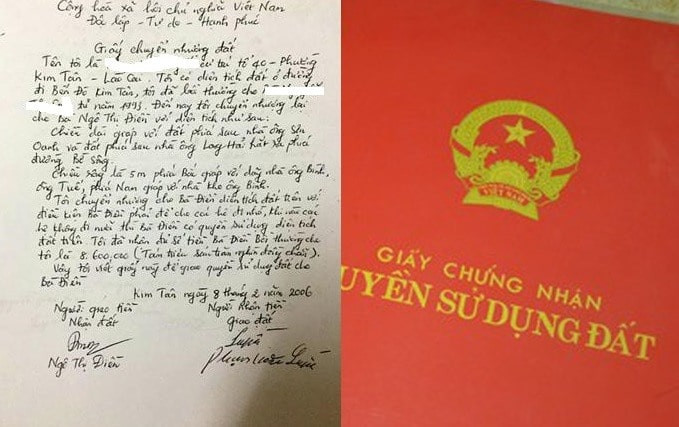 Cộng hòa xã hội chủ nghĩa Việt Nam
Độc lập - Tự do - Hạnh phúc
Giấy chuyển nhượng đất
Tên tôi là cư trú tổ 40 - Phường
Kim Tân - Lào Cai. Tôi có diện tích đất ở đường
đi Bến Đá Kim Tân, tôi đã bồi thường cho
từ năm 1993. Đến nay tôi chuyển nhượng lại
cho bà Ngô Thị Điền với diện tích như sau:
Chiều dài giáp với đất phía sau nhà ông Sơn
Oanh và đất phía sau nhà ông Long Hải hắt ra phía
đường Bờ Sông.
Chiều rộng là 5m phía Bắc giáp với dãy nhà ông Bình,
ông Tuế, phía Nam giáp với nhà kho ông Bình.
Tôi chuyển nhượng cho Bà Điền diện tích đất trên với
điều kiện Bà Điền phải để cho các hộ đi nhờ, khi nào các
hộ không đi nữa thì Bà Điền có quyền sử dụng diện tích
đất trên. Tôi đã nhận đủ số tiền Bà Điền Bồi thường cho
tôi là 8.600.000 (Tám triệu sáu trăm nghìn đồng chẵn).
Vậy tôi viết giấy này để giao quyền sử dụng đất cho
Bà Điền
Kim Tân ngày 8 tháng 2 năm 2006
Người giao tiền Người nhận tiền
Nhận đất Giao đất
Ngô Thị Điền
VIỆT NAM
GIẤY CHỨNG NHẬN
UYỀN SỬ DỤNG ĐẤT